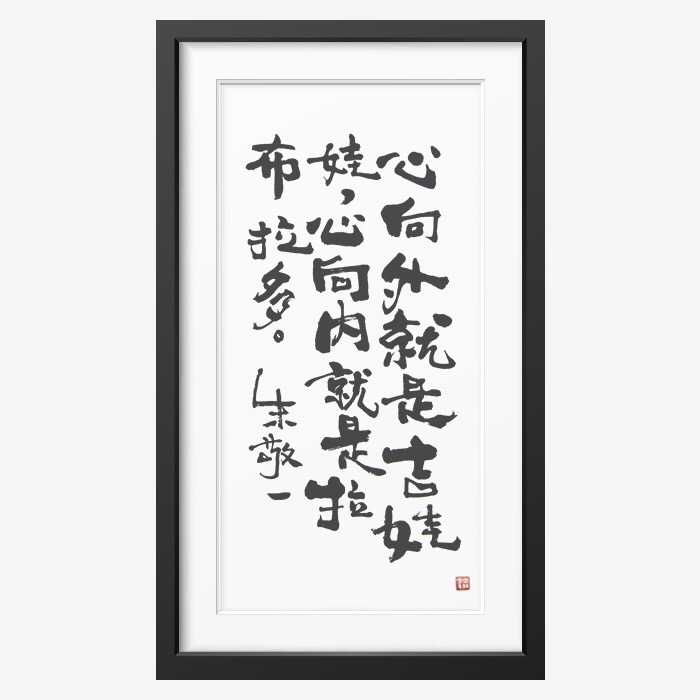 心向外就是吉娃
娃，心向内就是拉
布拉多。朱敬一